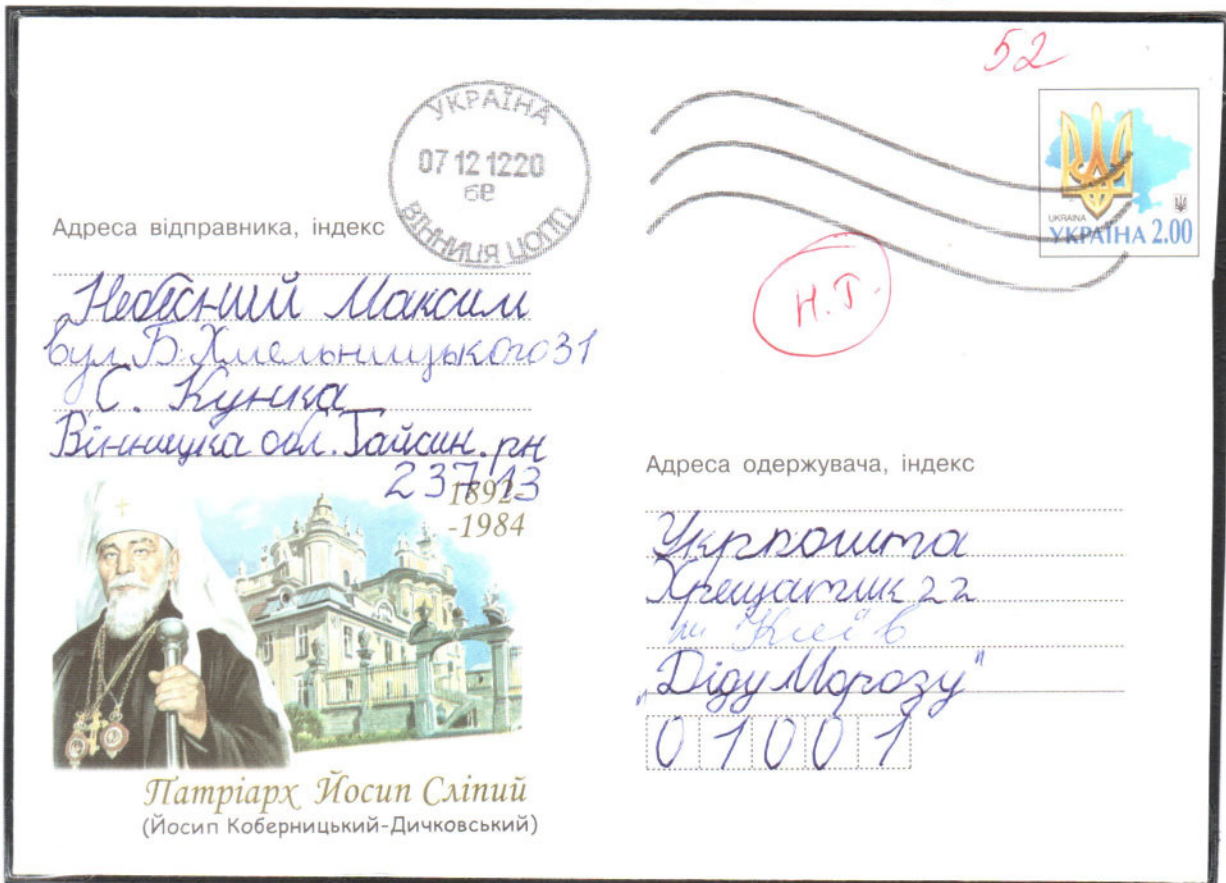 52
УКРАЇНА
07 12 12 20
6е
ВІННИЦЯ ЦОПП
UKRAINA
УКРАЇНА 2.00
Н.Г.
Адреса відправника, індекс
Небесний Максим
вул Б. Хмельницького 31
С. Кунка
Вінницка обл. Гайсин. рн
23713
1892-
-1984
Патріарх Йосип Сліпий
(Йосип Коберницький-Дичковський)
Адреса одержувача, індекс
Укрпошта
Хрещатик 22
м Київ
"Діду Морозу"
01001